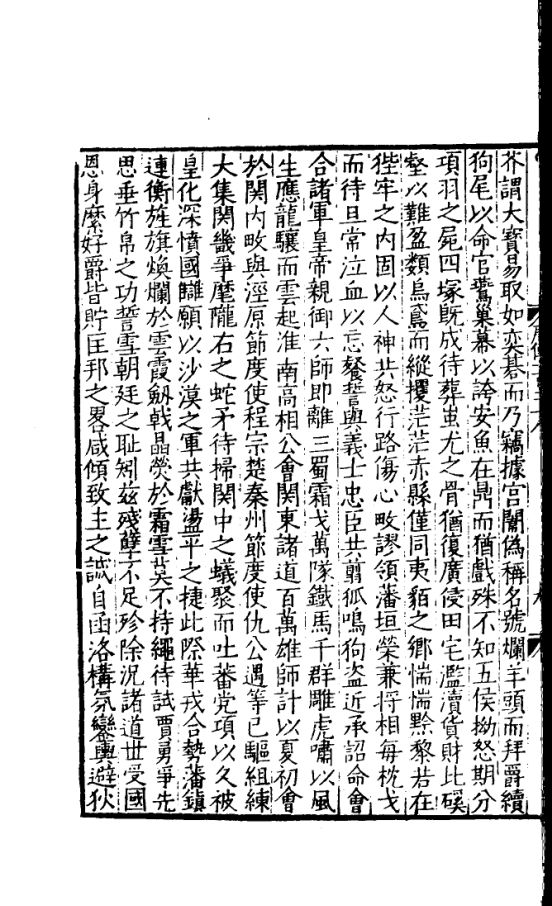 芥謂大寶易取如奕碁而乃竊據宮闈偽稱名號爛羊頭而拜爵續
狗尾以命官鷰巢幕以誇安魚在鼎而猶戲殊不知五侯拗怒期分
項羽之屍四塚旣成待葬蚩尤之骨猶復廣侵田宅濫瀆貨財比磎
壑以難盈類烏鳶而縱攫茫茫赤縣僅同夷貊之鄉惴惴黔黎若在
狴牢之内固以人神共怒行路傷心畋謬領藩垣榮兼將相每枕戈
而待旦常泣血以忘餐誓與義士忠臣共翦狐鳴狗盜近承詔命會
合諸軍皇帝親御六師即離三蜀霜戈萬隊鐵馬千群雕虎嘯以風
生應龍驤而雲起淮南高相公會関東諸道百萬雄師計以夏初會
於関内畋與涇原節度使程宗楚秦州節度使仇公遇等已驅組練
大集関畿爭麾隴右之蛇矛待掃関中之蟻聚而吐蕃党項以久被
皇化深憤國讎願以沙漠之軍共獻盪平之捷此際華戎合勢藩鎮
連衡旌旗煥爛於雲霞劔戟晶熒於霜雪莫不持繩待試賈勇爭先
思垂竹帛之功誓雪朝廷之耻矧茲殘孽不足殄除況諸道世受國
恩身縻好爵皆貯匡邦之畧咸傾致主之誠自函洛構氛鑾輿避狄